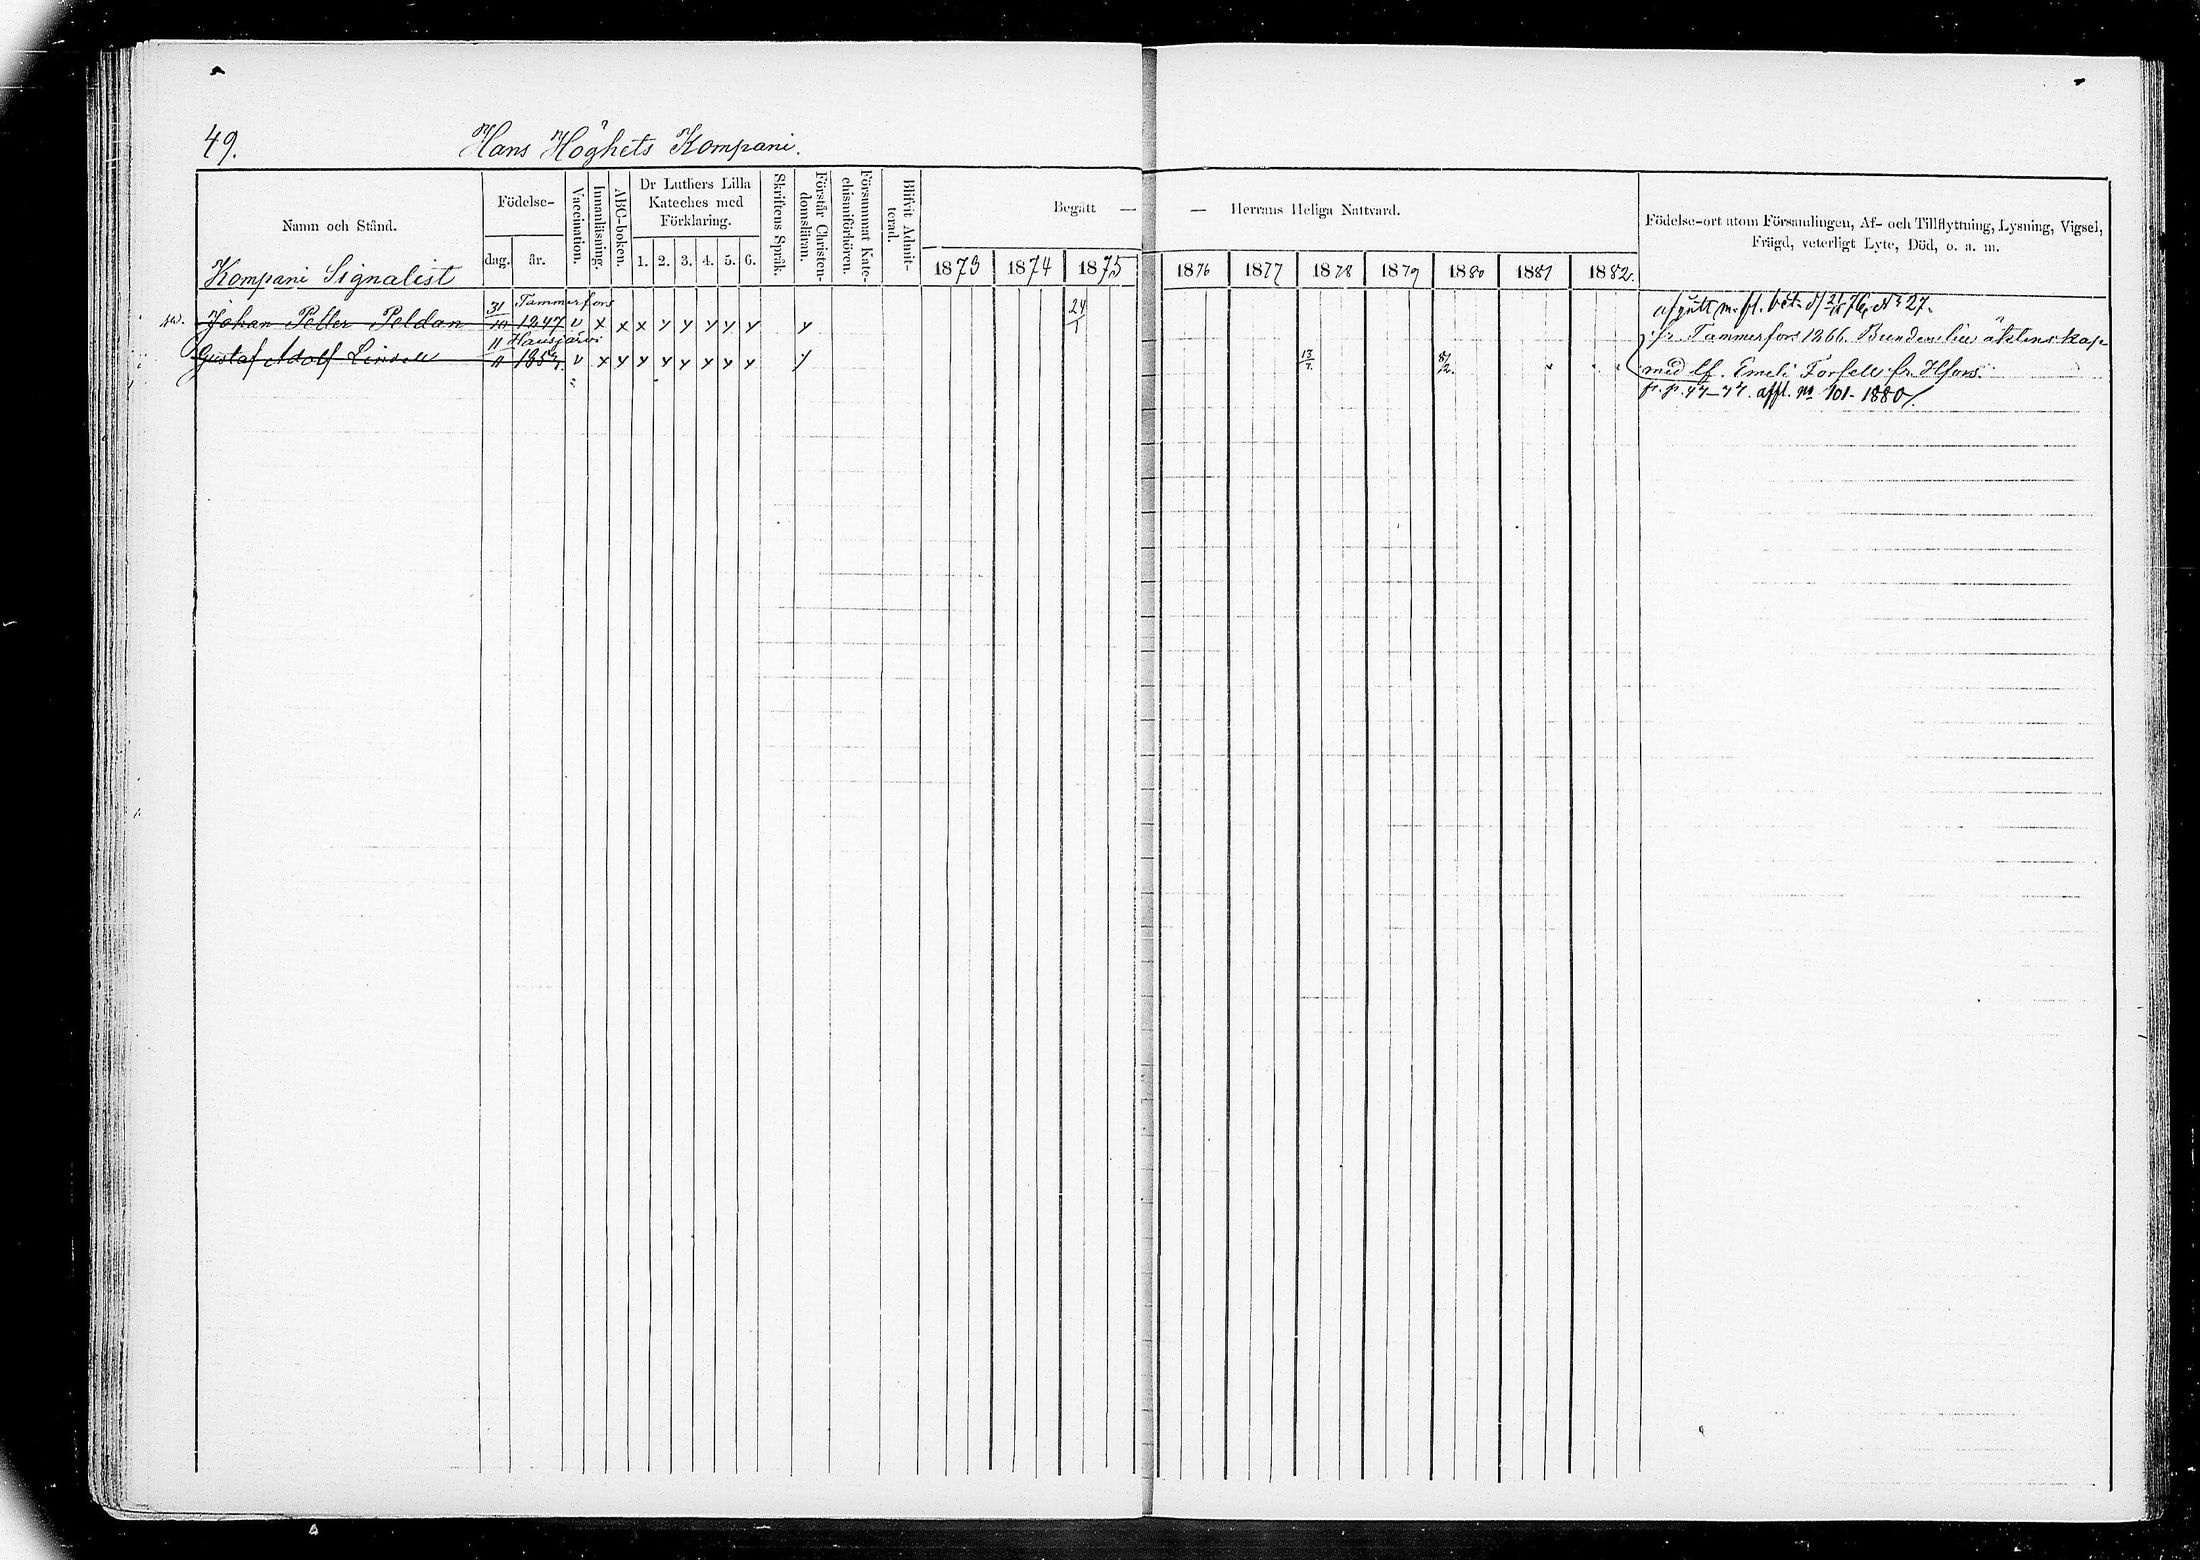 49.
Hans Höghets Kompani.
Namn och Stånd.
Födelse-
dag.
år.
Vaccination.
Innanläsning.
ABC-boken.
Dr Luthers Lilla
Kateches med
Förklaring.
1. 2. 3. 4. 5. 6.
Skriftens Språk.
Förstår Christen-
domsläran.
Försummat Kate-
chismiförhören.
Blifvit Admit-
terad.
Begått —
— Herrans Heliga Nattvard.
1873 1874 1875 1876 1877 1878 1879 1880 1881 1882.
Födelse-ort utom Församlingen, Af- och Tillflyttning, Lysning, Vigsel,
Frägd, veterligt Lyte, Död, o. a. m.
Kompani Signalist
31 Tammerfors
Johan Petter Peldan 10 1847 v x x x y y y y y y 24/1
afgått m. fl. bet. 76, N 27.
11 Hausjärvi
fr. Tammerfors 1866. Bunden äktenskap
Gustaf Adolf Lindell 11 1857. v x y y y y y y y y 13/7 8/2.
med Emeli Forsell fr. Hfors.
fr. p. 47-77. affl. no 101-1880.